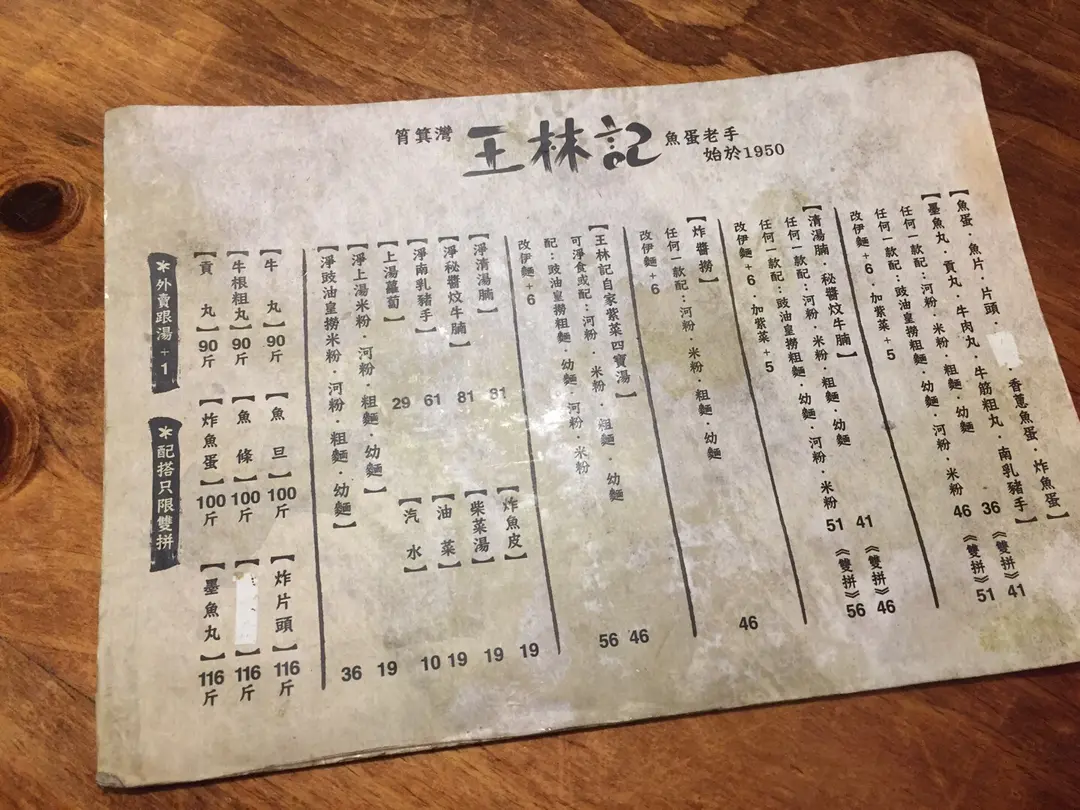 筲箕灣 王林記 魚蛋老手
始於1950
【魚蛋．魚片．片頭．香蔥魚蛋．炸魚蛋】
【墨魚丸．貢丸．牛肉丸．牛筋粗丸．南乳豬手】
任何一款配：河粉．米粉．粗麵．幼麵 36 《雙拼》 41
任何一款配：豉油皇撈粗麵．幼麵．河粉．米粉 46 《雙拼》 51
改伊麵+6．加紫菜+5
【清湯腩．秘醬炆牛腩】
任何一款配：河粉．米粉．粗麵．幼麵 41 《雙拼》 46
任何一款配：豉油皇撈粗麵．幼麵．河粉．米粉 51 《雙拼》 56
改伊麵+6．加紫菜+5
【炸醬撈】
任何一款配：河粉．米粉．粗麵．幼麵 46
改伊麵+6
【王林記自家紫菜四寶湯】
可淨食或配：河粉．米粉．粗麵．幼麵 46
配：豉油皇撈粗麵．幼麵．河粉．米粉 56
改伊麵+6
【淨清湯腩】 81
【淨秘醬炆牛腩】 81
【淨南乳豬手】 61
【上湯蘿蔔】 29
【炸魚皮】 19
【柴菜湯】 19
【油菜】 19
【汽水】 10
【淨上湯米粉．河粉．粗麵．幼麵】 19
【淨豉油皇撈米粉．河粉．粗麵．幼麵】 36
【牛丸】90斤
【魚旦】100斤
【炸片頭】116斤
【牛根粗丸】90斤
【魚條】100斤
【】116斤
【貢丸】90斤
【炸魚蛋】100斤
【墨魚丸】116斤
*外賣跟湯+1
*配搭只限雙拼